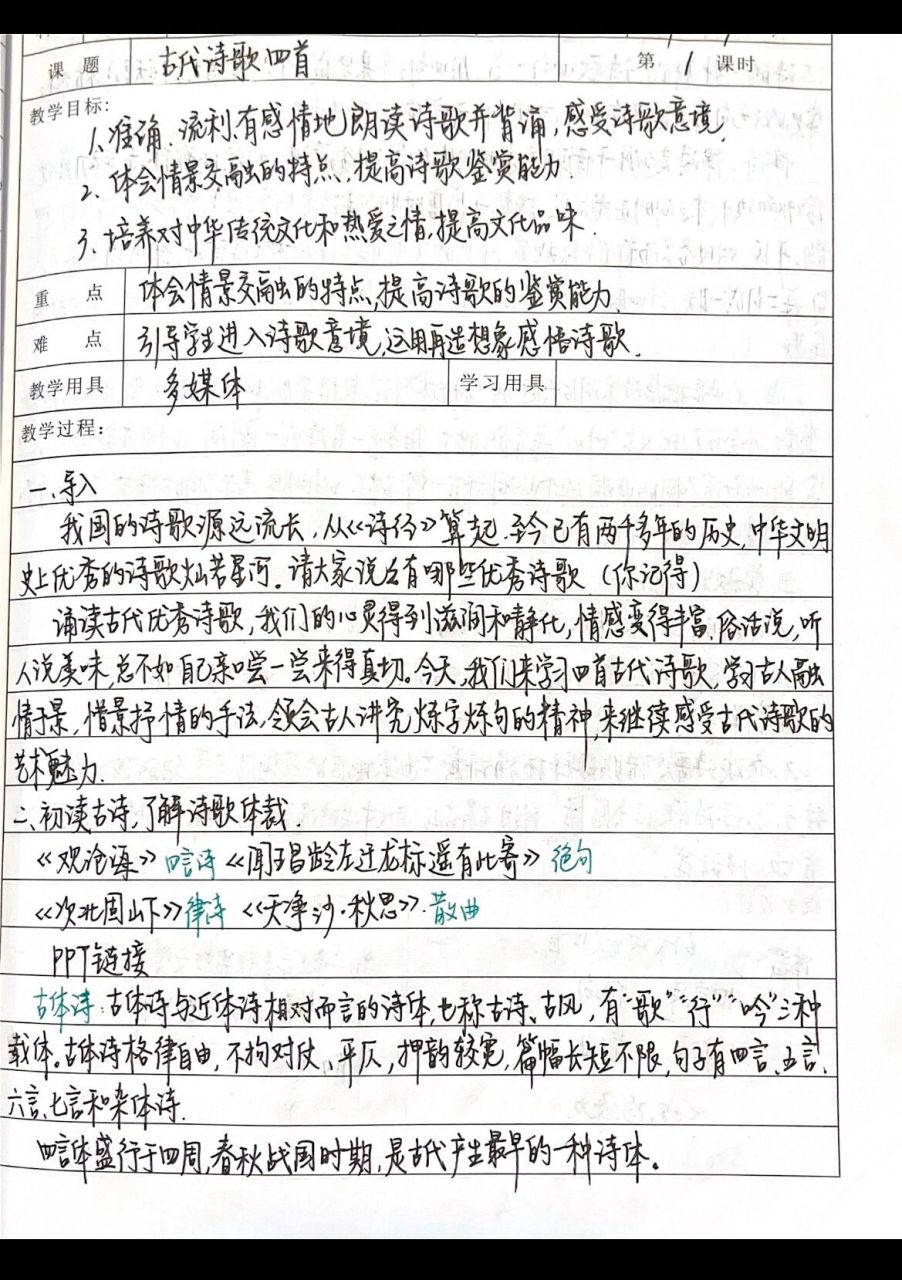 课 题 古代诗歌四首 第 1 课时
教学目标:
1、准确、流利、有感情地朗读诗歌并背诵,感受诗歌意境.
2、体会情景交融的特点、提高诗歌鉴赏能力
3、培养对中华传统文化和热爱之情,提高文化品味.
重 点 体会情景交融的特点,提高诗歌的鉴赏能力.
难 点 引导学生进入诗歌意境,运用再造想象感悟诗歌.
教学用具 多媒体 学习用具
教学过程:
一、导入
我国的诗歌源远流长,从《诗经》算起.至今已有两千多年的历史,中华文明
史上优秀的诗歌灿若星河.请大家说么有哪些优秀诗歌(你记得)
诵读古代优秀诗歌,我们的心灵得到滋润和静化,情感变得丰富.俗话说,听
人说美味,总不如自己亲口尝一尝来得真切。今天,我们来学习四首古代诗歌,学习古人融
情于景,借景抒情的手法,领会古人讲究炼字炼句的精神,来继续感受古代诗歌的
艺术魅力.
二、初读古诗,了解诗歌体裁.
《观沧海》四言诗《闻王昌龄左迁龙标遥有此寄》绝句
《次北固山下》律诗《天净沙·秋思》.散曲
PPT链接
古体诗:古体诗与近体诗相对而言的诗体,也称古诗、古风,有“歌”“行”“吟”三种
载体。古体诗格律自由,不拘对仗、平仄,押韵较宽,篇幅长短不限,句子有四言、五言、
六言、七言和杂体诗.
四言体盛行于四周,春秋战国时期,是古代产生最早的一种诗体。